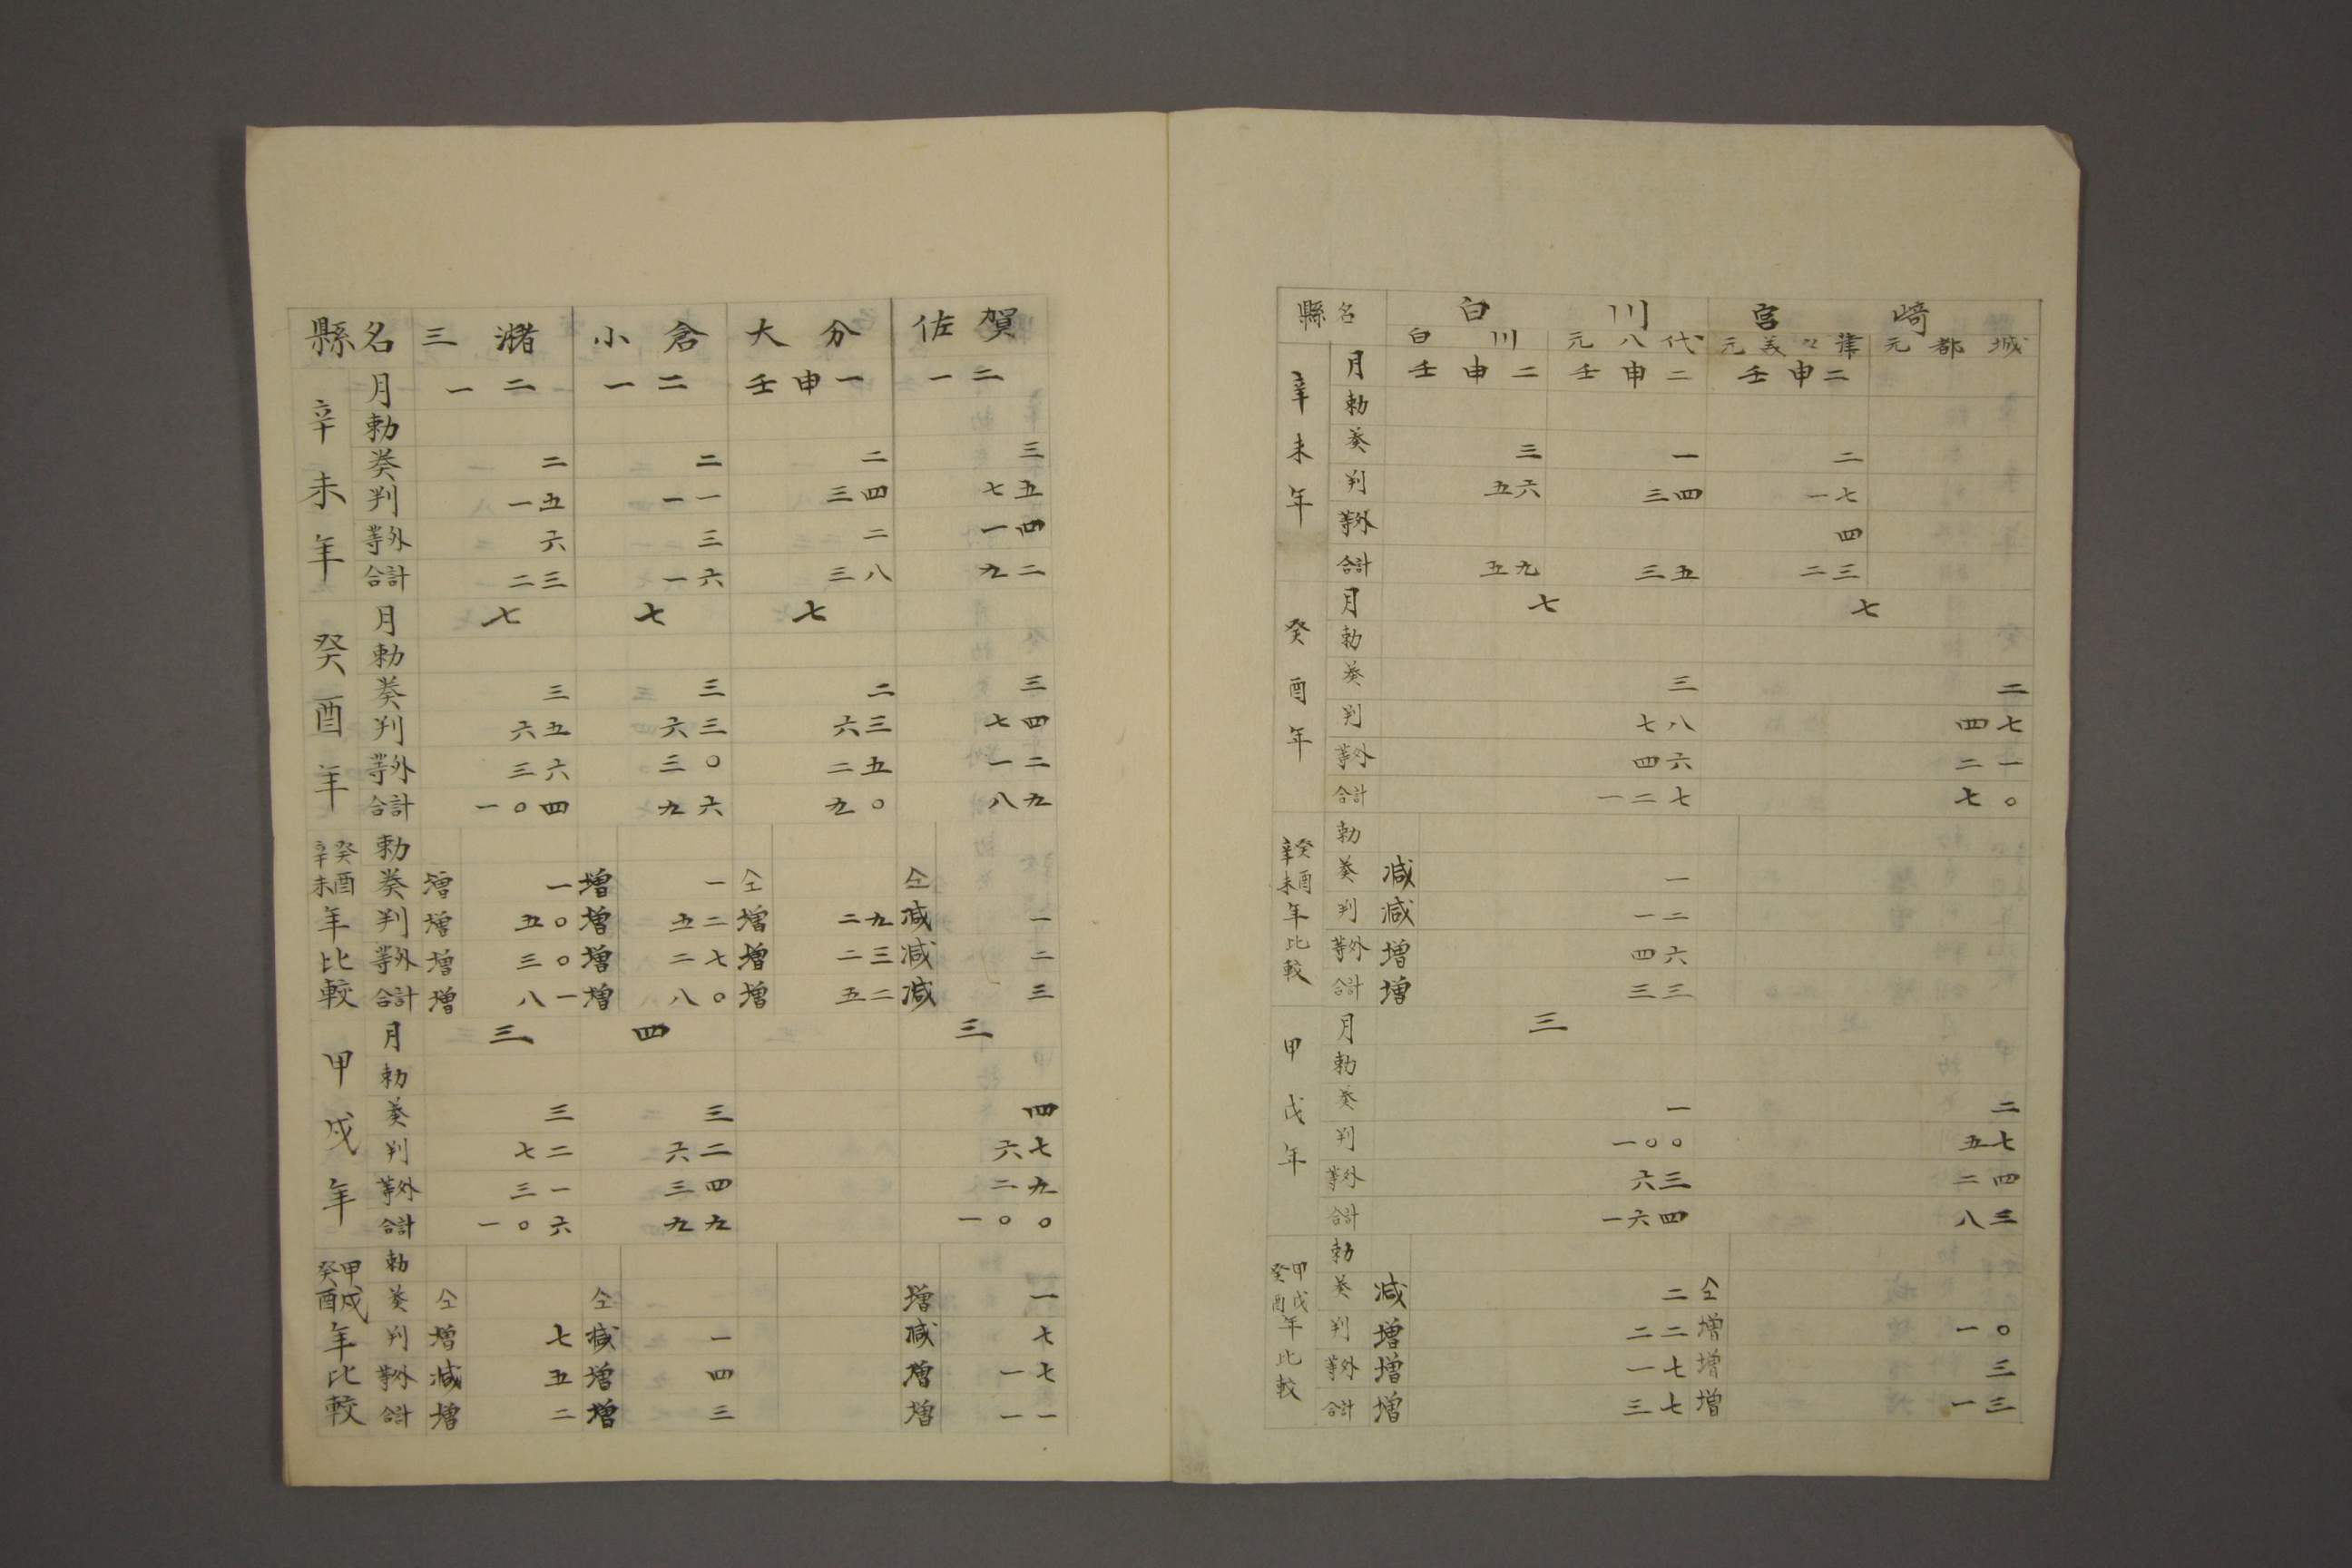 縣名 三潴 小倉 大分 佐賀
辛未年 月 一二 一二 壬申一 一二
勅
奏 二 二 二 三
判 一五 一一 三四 七五
等外 六 三 二 一四
合計 二三 一六 三八 九二
癸酉年 月 七 七 七
勅
奏 三 三 二 三
判 六五 六三 六三 七四
等外 三六 三〇 二五 一二
合計 一〇四 九六 九〇 八九
辛未癸酉年比較 勅
奏 増 一 増 一 仝 仝
判 増 五〇 増 五二 増 二九 減 一
等外 増 三〇 増 二七 増 二三 減 二
合計 増 八一 増 八〇 増 五二 減 三
甲戌年 月 三 四 三
勅
奏 三 三 四
判 七二 六二 六七
等外 三一 三四 二九
合計 一〇六 九九 一〇〇
癸酉甲戌年比較 勅
奏 仝 仝 増 一
判 増 七 減 一 減 七
等外 減 五 増 四 増 一七
合計 増 二 増 三 増 一一
縣名 白川 宮崎
白川 元八代 元美々津 元都城
辛未年 月 壬申二 壬申二 壬申二
勅
奏 三 一 二
判 五六 三四 一七
等外 四
合計 五九 三五 二三
癸酉年 月 七 七
勅
奏 三 二
判 七八 四七
等外 四六 二一
合計 一二七 七〇
辛未癸酉年比較 勅
奏 減 一
判 減 一二
等外 増 四六
合計 増 三三
甲戌年 月 三
勅
奏 一 二
判 一〇〇 五七
等外 六三 二四
合計 一六四 八三
癸酉甲戌年比較 勅
奏 減 二 仝
判 増 二二 増 一〇
等外 増 一七 増 三
合計 増 三七 増 一三